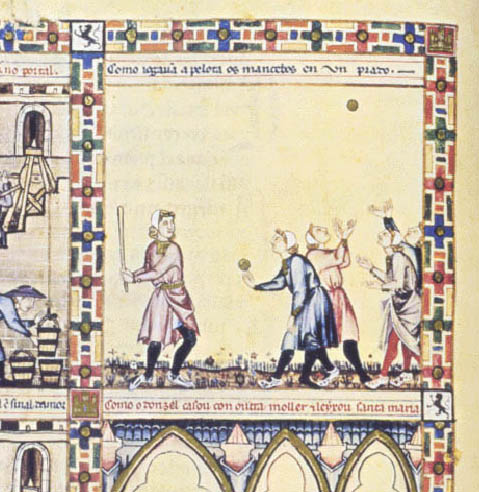 no portal.
Como iogauã a pelota os mancebos en vn prado.
l é sinal
Como o donzel casou con outra moller τ leyxou santa maria